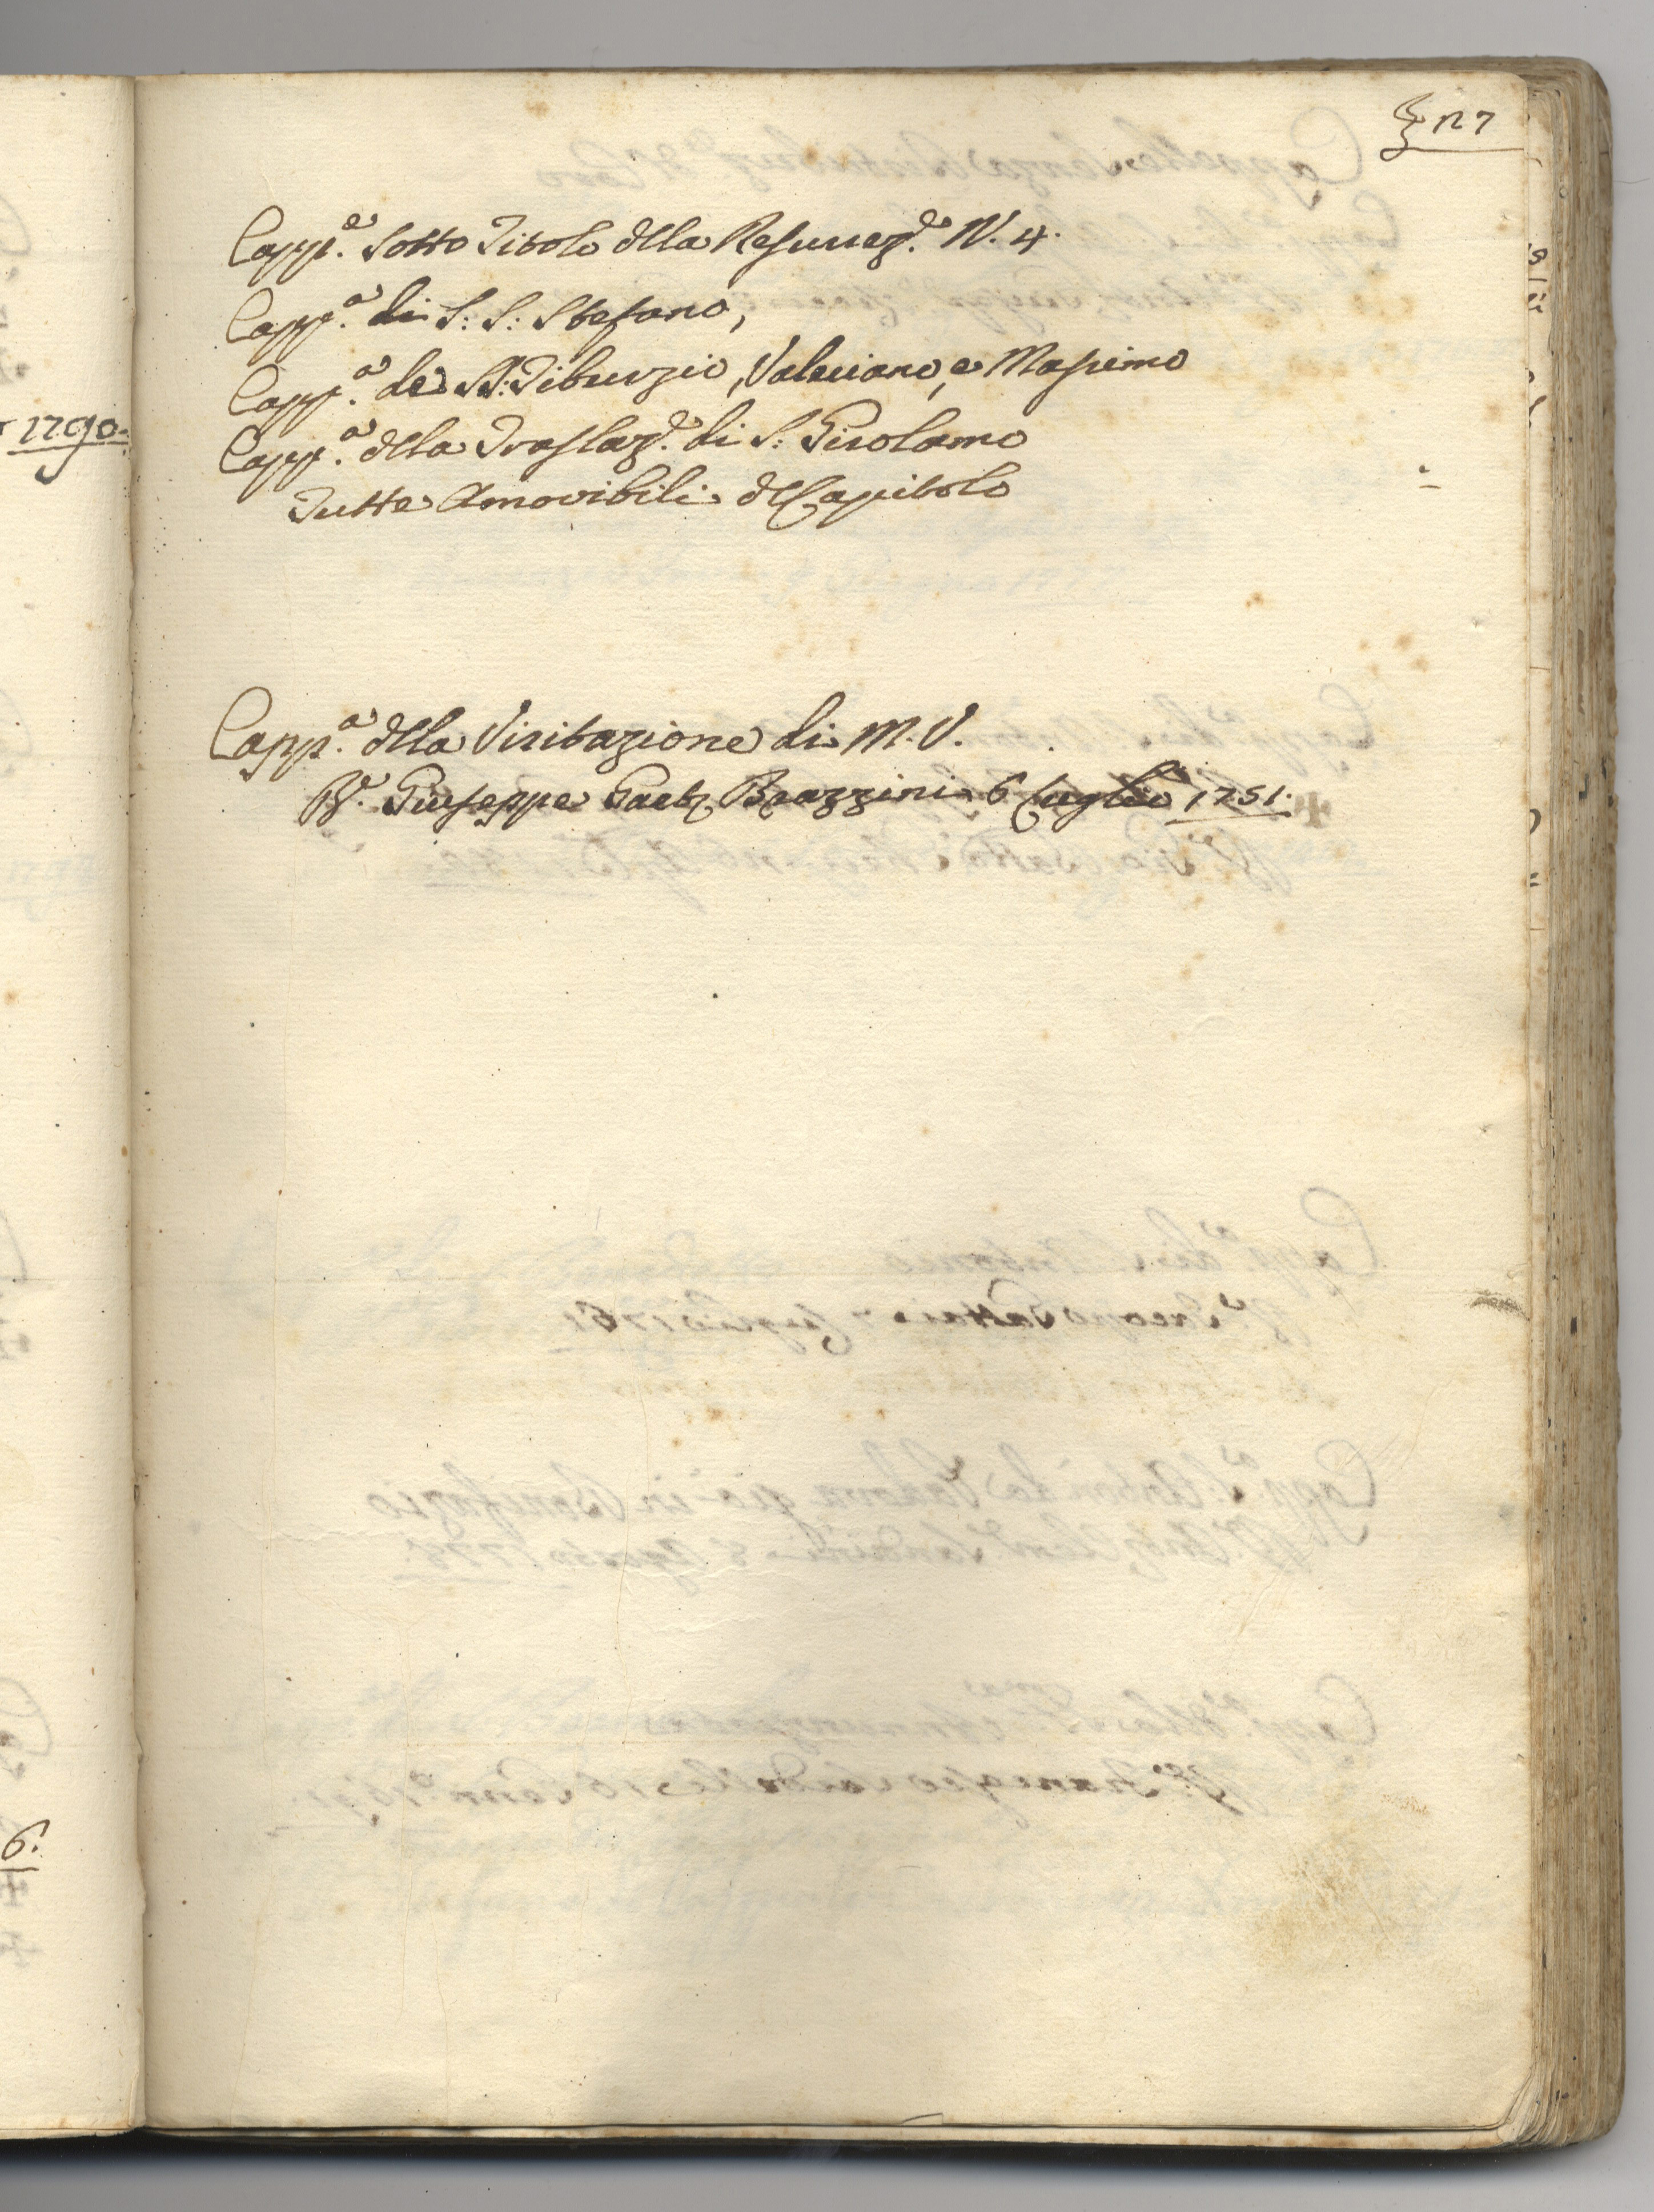 127
Capp.e sotto Titolo della Resurrez.e N. 4.
Capp.a di S: S: Stefano,
Capp.a de SS: Tiburzio, Valeriano, e Massimo
Capp.a della Traslaz.e di S: Girolamo
Tutte Amovibili del Capitolo
1790.
Capp.a della Visitazione di M. V.
P.e Giuseppe Gaet. Brazzini 6 Luglio 1751.
6.